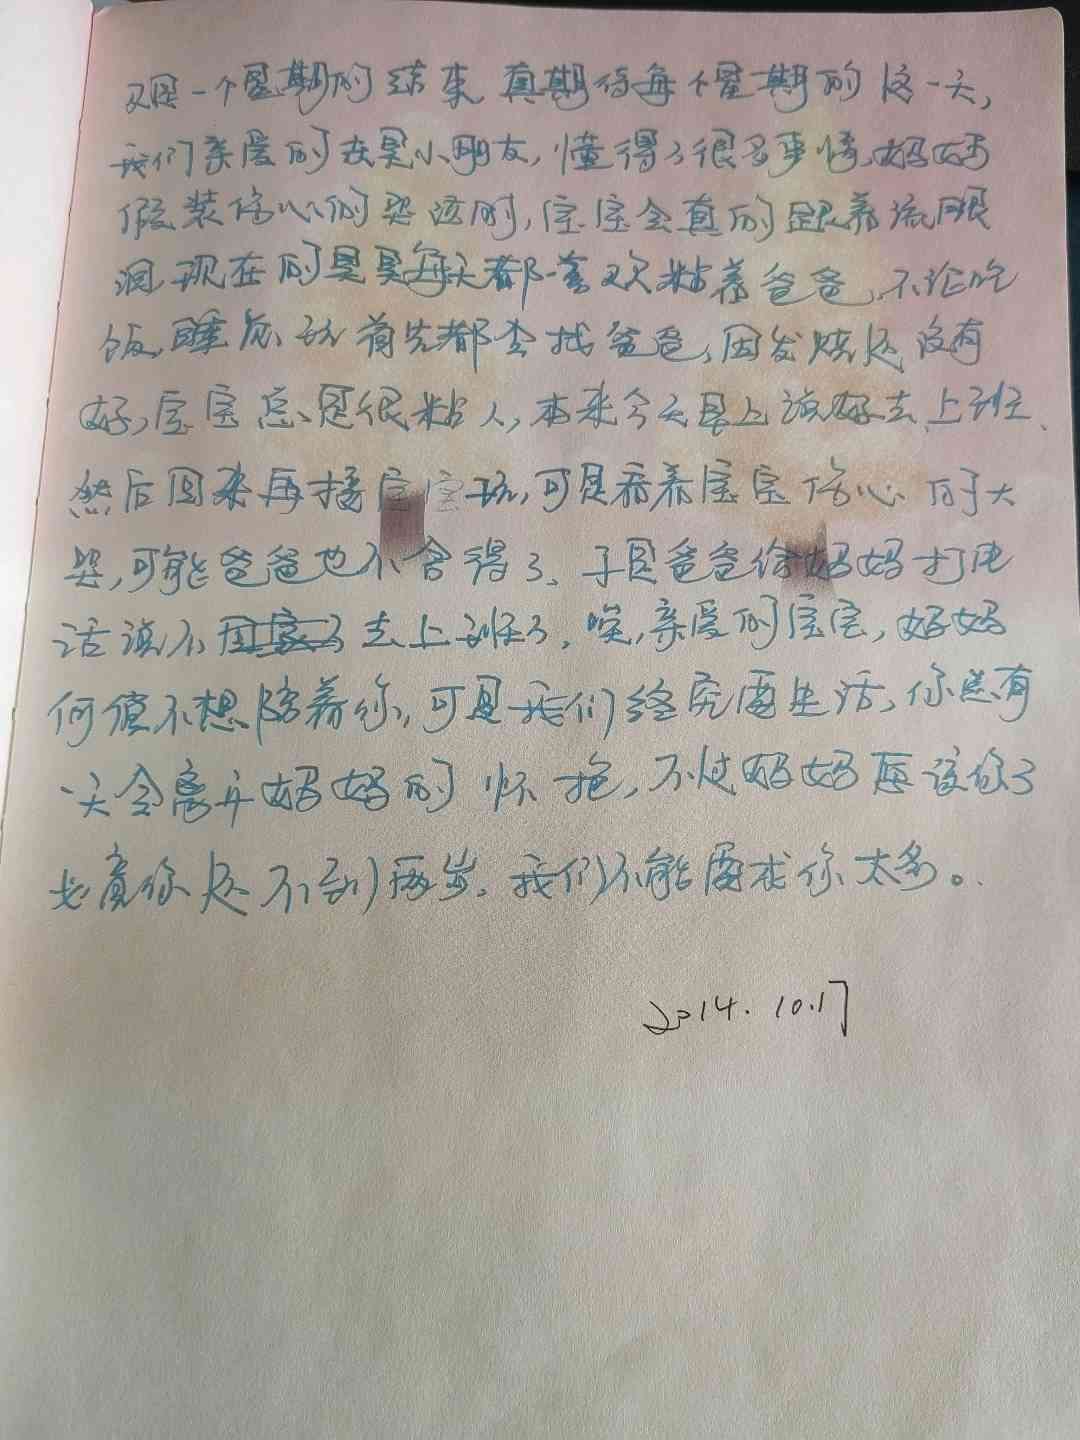 又是一个星期的结束 真期待每个星期的这一天,
我们亲爱的夫昊小朋友, 懂得了很多事情, 妈妈
假装伤心的哭泣时, 宝宝会真的跟着流眼
泪, 现在的昊昊每天都喜欢粘着爸爸, 不论吃
饭、睡觉、玩首先都会找爸爸, 因发烧还没有
好, 宝宝总是很粘人, 本来今天早上说好去上班、
然后回来再接宝宝玩, 可是看着宝宝伤心的大
哭, 可能爸爸也不舍得了、于是爸爸给妈妈打电
话说不去上班了, 唉, 亲爱的宝宝, 妈妈
何偿不想陪着你, 可是我们终究要生活, 你总有
一天会离开妈妈的怀抱, 不过妈妈应该
毕竟你还不到两岁. 我们不能要求你太多。
2014.10.17